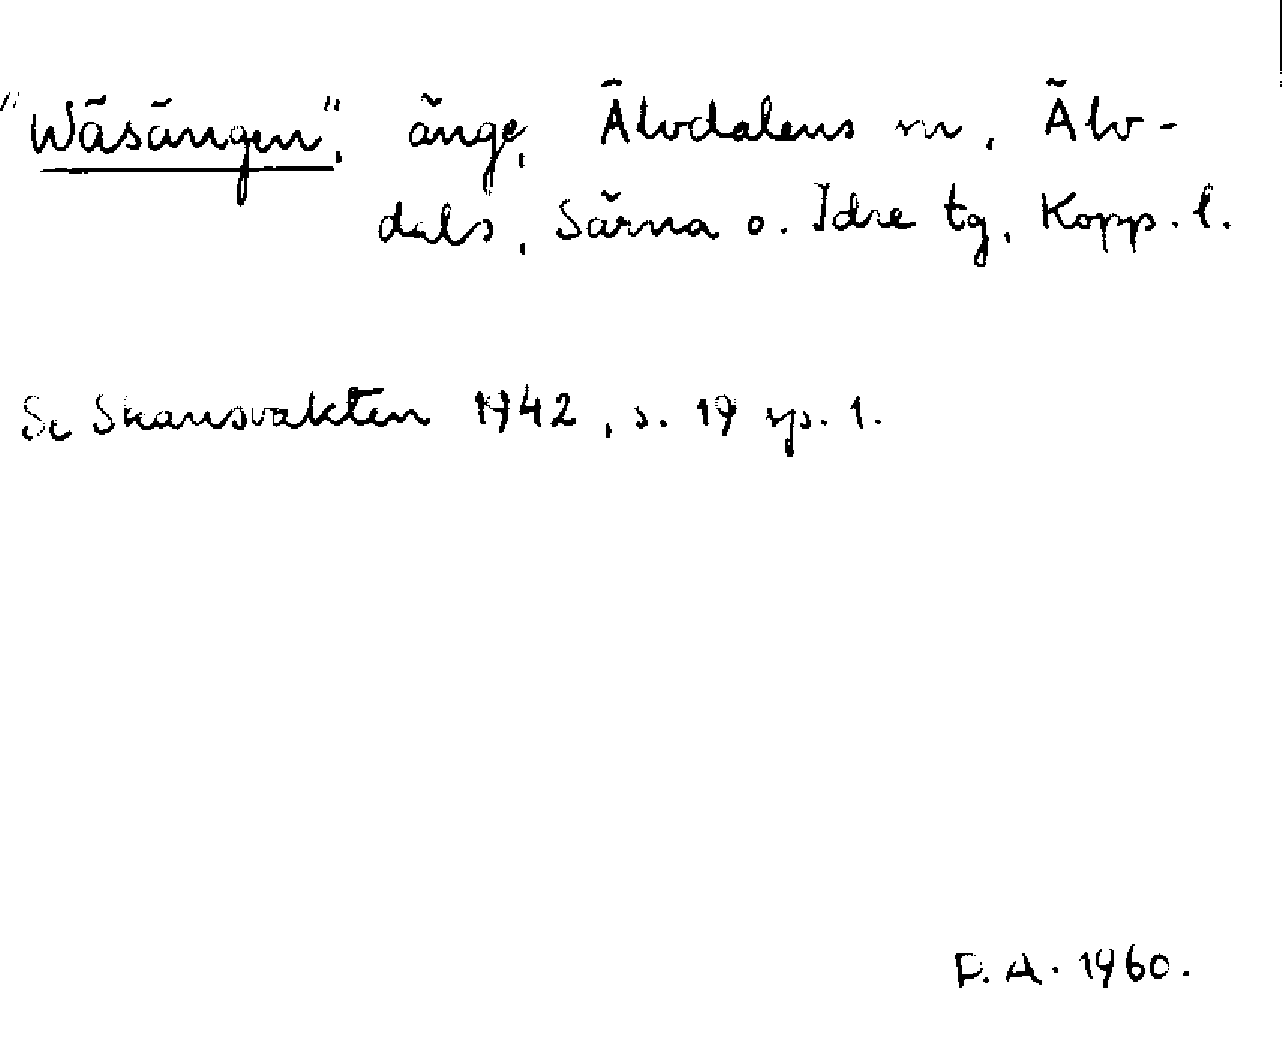 "Wäsängen", änge, Älvdalens sn, Älv-
dals, Särna o. Idre tg, Kopp. l.
Se Skansvakten 1942, s. 19 sp. 1.
F. A. 1960.